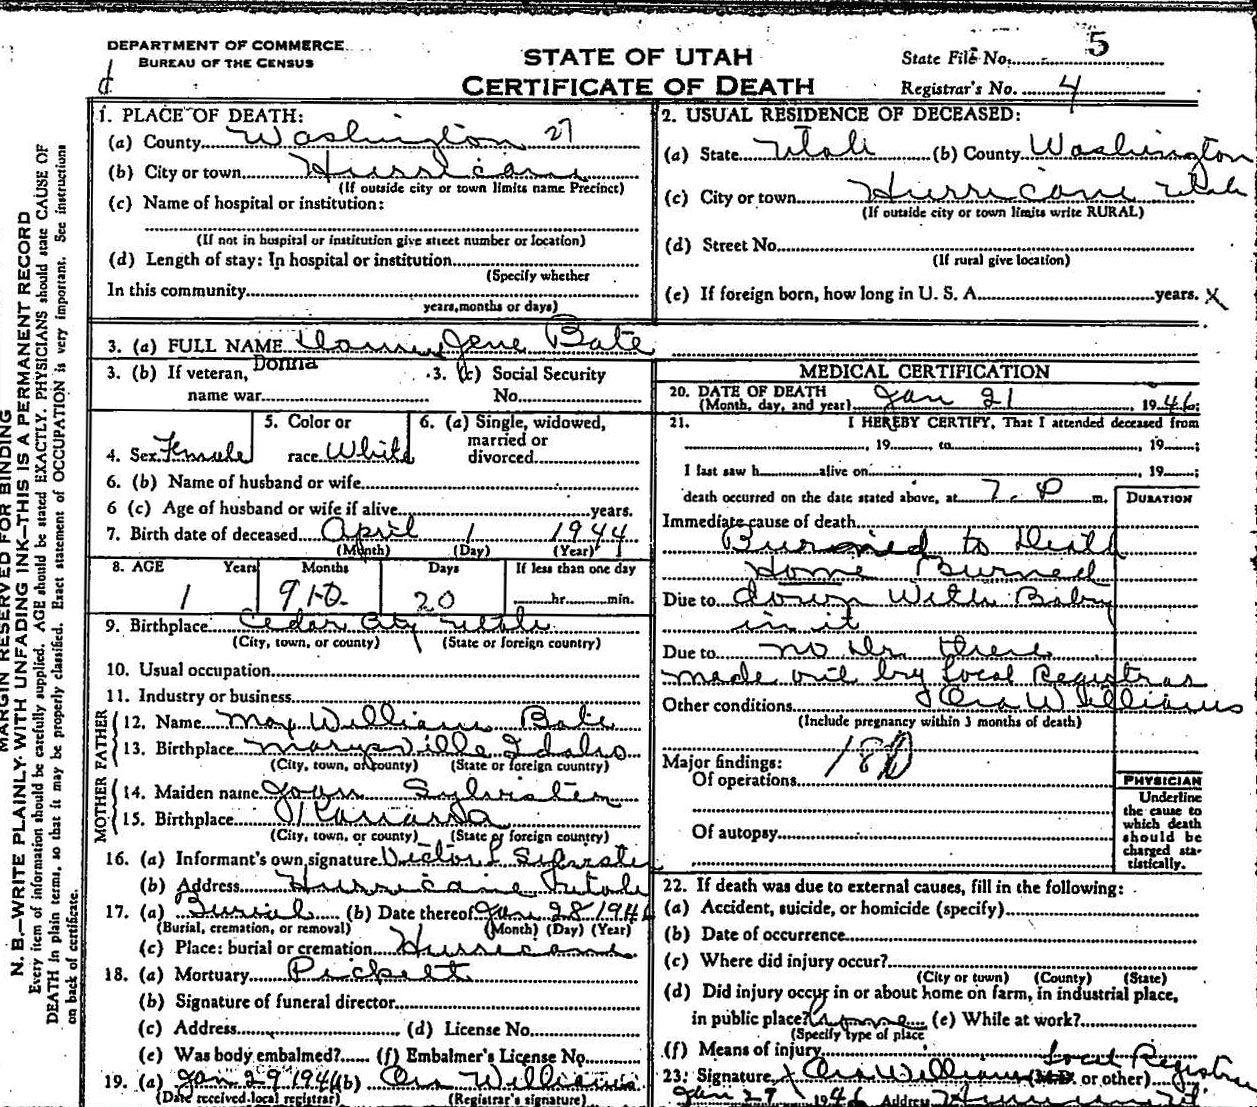 DEPARTMENT OF COMMERCE
BUREAU OF THE CENSUS
STATE OF UTAH
CERTIFICATE OF DEATH
State File No. 5
Registrar's No. 4
MARGIN RESERVED FOR BINDING
N. B.—WRITE PLAINLY WITH UNFADING INK—THIS IS A PERMANENT RECORD
Every item of information should be carefully supplied. AGE should be stated EXACTLY. PHYSICIANS should state CAUSE OF
DEATH in plain terms, so that it may be properly classified. Exact statement of OCCUPATION is very important. See instructions
on back of certificate.
1. PLACE OF DEATH:
(a) County Washington 27
(b) City or town Hurricane
(If outside city or town limits name Precinct)
(c) Name of hospital or institution:
(If not in hospital or institution give street number or location)
(d) Length of stay: In hospital or institution
(Specify whether
In this community
years, months or days)
2. USUAL RESIDENCE OF DECEASED:
(a) State Utah (b) County Washington
(c) City or town Hurricane Utah
(If outside city or town limits write RURAL)
(d) Street No.
(If rural give location)
(e) If foreign born, how long in U. S. A. years. X
3. (a) FULL NAME Jene Bate
Donna
3. (b) If veteran, name war
3. (c) Social Security No.
4. Sex Female
5. Color or race White
6. (a) Single, widowed, married or divorced
6. (b) Name of husband or wife
6 (c) Age of husband or wife if alive years.
7. Birth date of deceased April 1 1944
(Month) (Day) (Year)
8. AGE Years Months Days If less than one day
1 9 20 hr. min.
9. Birthplace Cedar City Utah
(City, town, or county) (State or foreign country)
10. Usual occupation
11. Industry or business
FATHER
12. Name Max Williams Bate
13. Birthplace Marysville Idaho
(City, town, or county) (State or foreign country)
MOTHER
14. Maiden name Sylvester
15. Birthplace
(City, town, or county) (State or foreign country)
16. (a) Informant's own signature Victor L Sylvester
(b) Address Hurricane Utah
17. (a) Burial (b) Date thereof Jan 28 1946
(Burial, cremation, or removal) (Month) (Day) (Year)
(c) Place: burial or cremation Hurricane
18. (a) Mortuary Pickett
(b) Signature of funeral director
(c) Address (d) License No.
(e) Was body embalmed? (f) Embalmer's License No.
19. (a) Jan 29 1946 (b) Ora Williams
(Date received local registrar) (Registrar's signature)
MEDICAL CERTIFICATION
20. DATE OF DEATH
(Month, day, and year) Jan 21, 1946;
21. I HEREBY CERTIFY, That I attended deceased from
, 19 , to , 19 ;
I last saw h alive on , 19 ;
death occurred on the date stated above, at 7 P m.
DURATION
Immediate cause of death
Burned to Death
Home Burned
Due to down With Baby
in it
Due to no Dr. there
made out by Local Registrar
Other conditions Ora Williams
(Include pregnancy within 3 months of death)
Major findings: 180
Of operations
Of autopsy
PHYSICIAN
Underline
the cause to
which death
should be
charged sta-
tistically.
22. If death was due to external causes, fill in the following:
(a) Accident, suicide, or homicide (specify)
(b) Date of occurrence
(c) Where did injury occur?
(City or town) (County) (State)
(d) Did injury occur in or about home on farm, in industrial place,
in public place? home (e) While at work?
(Specify type of place
(f) Means of injury
Local Registrar
23. Signature X Ora Williams (M.D. or other)
Jan 29 1946 Address Hurricane Ut